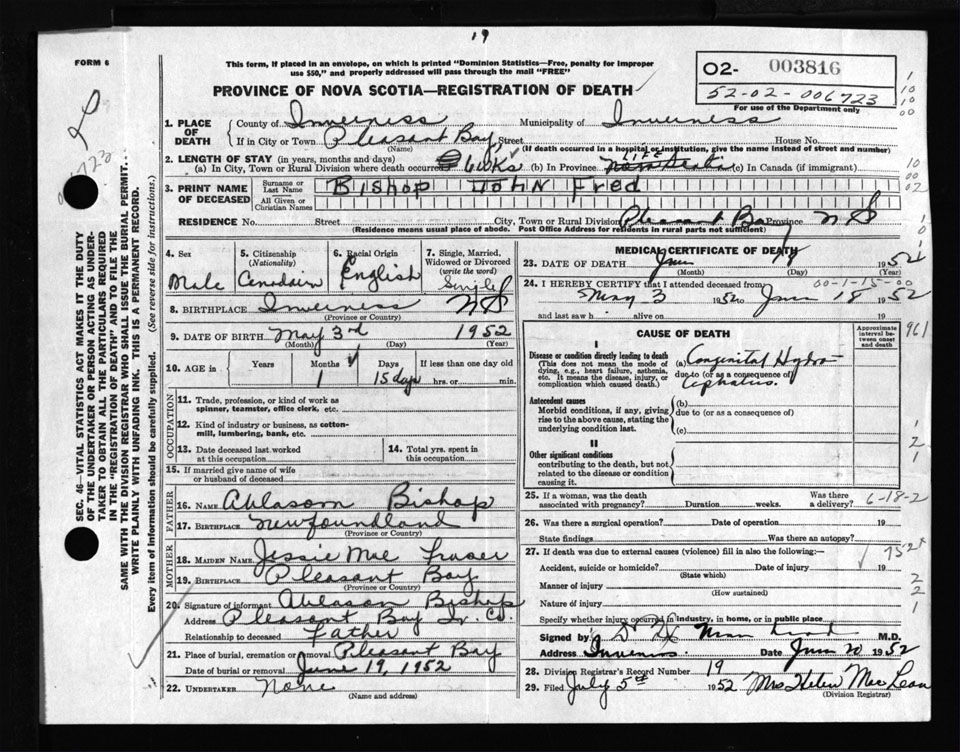 19
FORM 6
This form, if placed in an envelope, on which is printed "Dominion Statistics—Free, penalty for improper
use $50," and properly addressed will pass through the mail "FREE"
PROVINCE OF NOVA SCOTIA—REGISTRATION OF DEATH
02- 003816
52-02-006723
For use of the Department only
1. PLACE OF DEATH
County of Inverness Municipality of Inverness
If in City or Town Pleasant Bay Street House No.
(Name) (If death occurred in a hospital or institution, give the name instead of street and number)
2. LENGTH OF STAY (in years, months and days)
(a) In City, Town or Rural Division where death occurred 6 wks (b) In Province Life (c) In Canada (if immigrant)
3. PRINT NAME OF DECEASED
Surname or Last Name Bishop John Fred
All Given or Christian Names
RESIDENCE No. Street City, Town or Rural Division Pleasant Bay Province N S
(Residence means usual place of abode. Post Office Address for residents in rural parts not sufficient)
4. Sex Male
5. Citizenship (Nationality) Canadain
6. Racial Origin English
7. Single, Married, Widowed or Divorced (write the word) Single
8. BIRTHPLACE Inverness N S
(Province or Country)
9. DATE OF BIRTH May 3rd 1952
(Month) (Day) (Year)
10. AGE in Years Months 1 Days 15 days If less than one day old hrs. or min.
OCCUPATION
11. Trade, profession, or kind of work as
spinner, teamster, office clerk, etc.
12. Kind of industry or business, as cotton-
mill, lumbering, bank, etc.
13. Date deceased last worked at this occupation
14. Total yrs. spent in this occupation
15. If married give name of wife
or husband of deceased
FATHER
16. Name Ahlasom Bishop
17. Birthplace Newfoundland
(Province or Country)
MOTHER
18. Maiden Name Jessie Mae Fraser
19. Birthplace Pleasant Bay
(Province or Country)
20. Signature of informant Ahlasom Bishop
Address Pleasant Bay Iv. Co.
Relationship to deceased Father
21. Place of burial, cremation or removal Pleasant Bay
Date of burial or removal June 19, 1952
22. UNDERTAKER None
(Name and address)
MEDICAL CERTIFICATE OF DEATH
23. DATE OF DEATH June 19 1952
(Month) (Day) (Year)
00-1-15-00
24. I HEREBY CERTIFY that I attended deceased from
May 3 1952 to June 18 1952
and last saw h alive on 19
CAUSE OF DEATH
Approximate interval between onset and death
961
I
Disease or condition directly leading to death
(This does not mean the mode of dying, e.g., heart failure, asthenia, etc. It means the disease, injury, or complication which caused death.)
(a) Congenital Hydro
due to (or as a consequence of)
cephalus.
Antecedent causes
Morbid conditions, if any, giving rise to the above cause, stating the underlying condition last.
(b)
due to (or as a consequence of)
(c)
II
Other significant conditions
contributing to the death, but not related to the disease or condition causing it.
25. If a woman, was the death associated with pregnancy? Duration weeks. Was there a delivery?
6-18-2
26. Was there a surgical operation? Date of operation 19
State findings Was there an autopsy?
27. If death was due to external causes (violence) fill in also the following:—
Accident, suicide or homicide? Date of injury 19
(State which)
Manner of injury
(How sustained)
Nature of injury
Specify whether injury occurred in industry, in home, or in public place
Signed by M.D.
Address Inverness Date June 20 1952
28. Division Registrar's Record Number 19
29. Filed July 5th 1952 Mrs Helen MacLean
(Division Registrar)
SEC. 46—VITAL STATISTICS ACT MAKES IT THE DUTY
OF THE UNDERTAKER OR PERSON ACTING AS UNDER-
TAKER TO OBTAIN ALL THE PARTICULARS REQUIRED
IN THE "REGISTRATION OF DEATH" AND TO FILE THE
SAME WITH THE DIVISION REGISTRAR WHO SHALL ISSUE THE BURIAL PERMIT.
WRITE PLAINLY WITH UNFADING INK. THIS IS A PERMANENT RECORD.
Every item of Information should be carefully supplied. (See reverse side for instructions.)